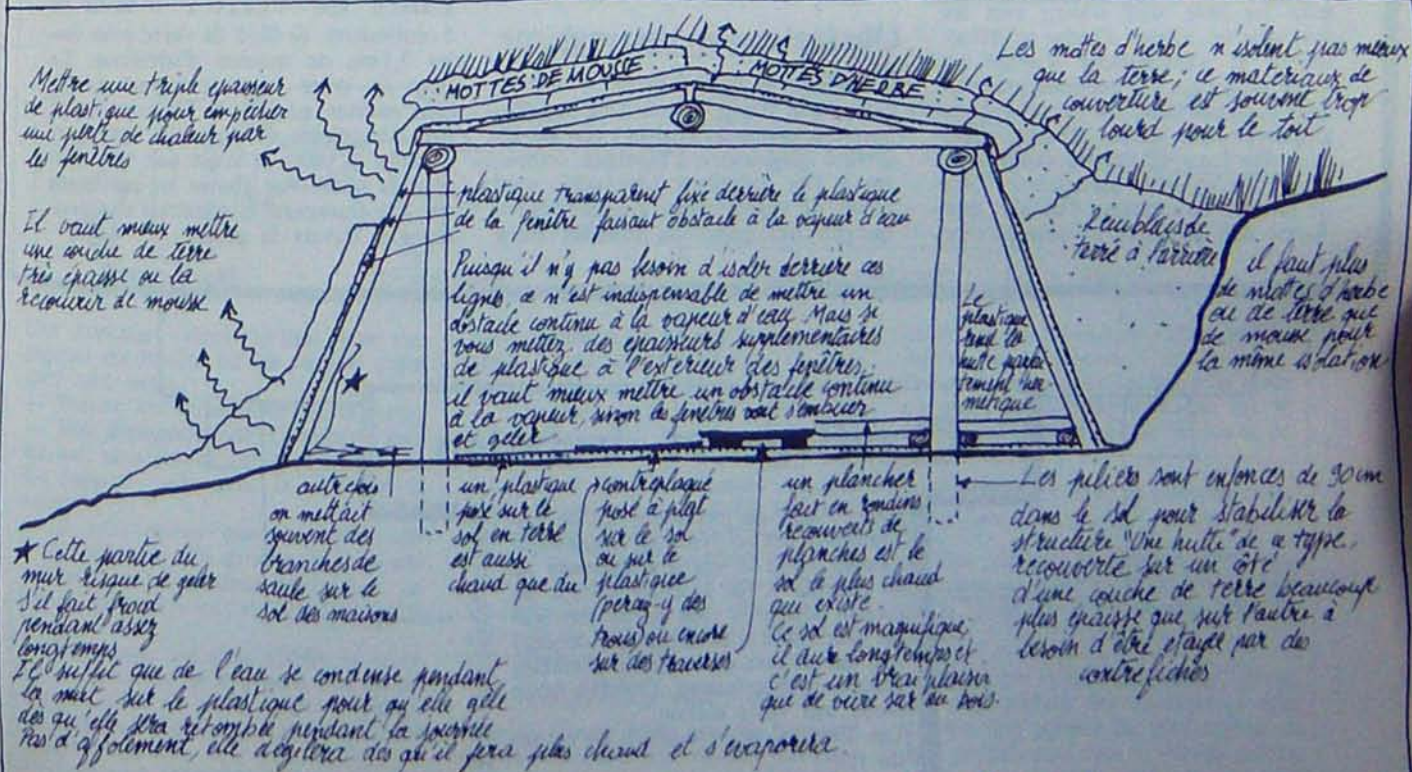 MOTTES DE MOUSSE
MOTTES D'HERBE
Mettre une triple epaisseur
de plastique pour empêcher
une perte de chaleur par
les fenêtres
Il vaut mieux mettre
une couche de terre
très épaisse ou la
recouvrir de mousse
Les mottes d'herbe n'isolent pas mieux
que la terre; ce materiaux de
couverture est souvent trop
lourd pour le toit
plastique transparent fixé derrière le plastique
de la fenêtre faisant obstacle à la vapeur d'eau
Puisqu'il n'y pas besoin d'isoler derrière ces
lignes ce n'est indispensable de mettre un
obstacle continu à la vapeur d'eau. Mais si
vous mettez des epaisseurs supplementaires
de plastique à l'exterieur des fenêtres,
il vaut mieux mettre un obstacle continu
à la vapeur, sinon les fenêtres vont s'embuer
et geler
Le
plastique
rend la
hutte
Remblais de
terre à l'arrière
il faut plus
de mottes d'herbe
ou de terre que
de mousse pour
la même isolation
autrefois
on mettait
souvent des
branches de
saule sur le
sol des maisons
un plastique
posé sur le
sol en terre
est aussi
chaud que du
contreplaqué
posé à plat
sur le sol
ou sur le
plastique
(percez-y des
trous) ou encore
sur des traverses
un plancher
fait en rondins
recouverts de
planches est le
sol le plus chaud
qui existe.
Ce sol est magnifique,
il dure longtemps et
c'est un vrai plaisir
que de vivre sur du bois.
Les piliers sont enfonces de 90 cm
dans le sol pour stabiliser la
structure "Une hutte" de ce type,
recouverte sur un côté
d'une couche de terre beaucoup
plus épaisse que sur l'autre à
besoin d'être etayée par des
contrefiches
★ Cette partie du
mur risque de geler
s'il fait froid
pendant assez
longtemps
Il suffit que de l'eau se condense pendant
la nuit sur le plastique pour qu'elle gèle
dès qu'elle sera retombée pendant la journée
Pas d'affolement, elle dégèlera dès qu'il fera plus chaud et s'evaporera.